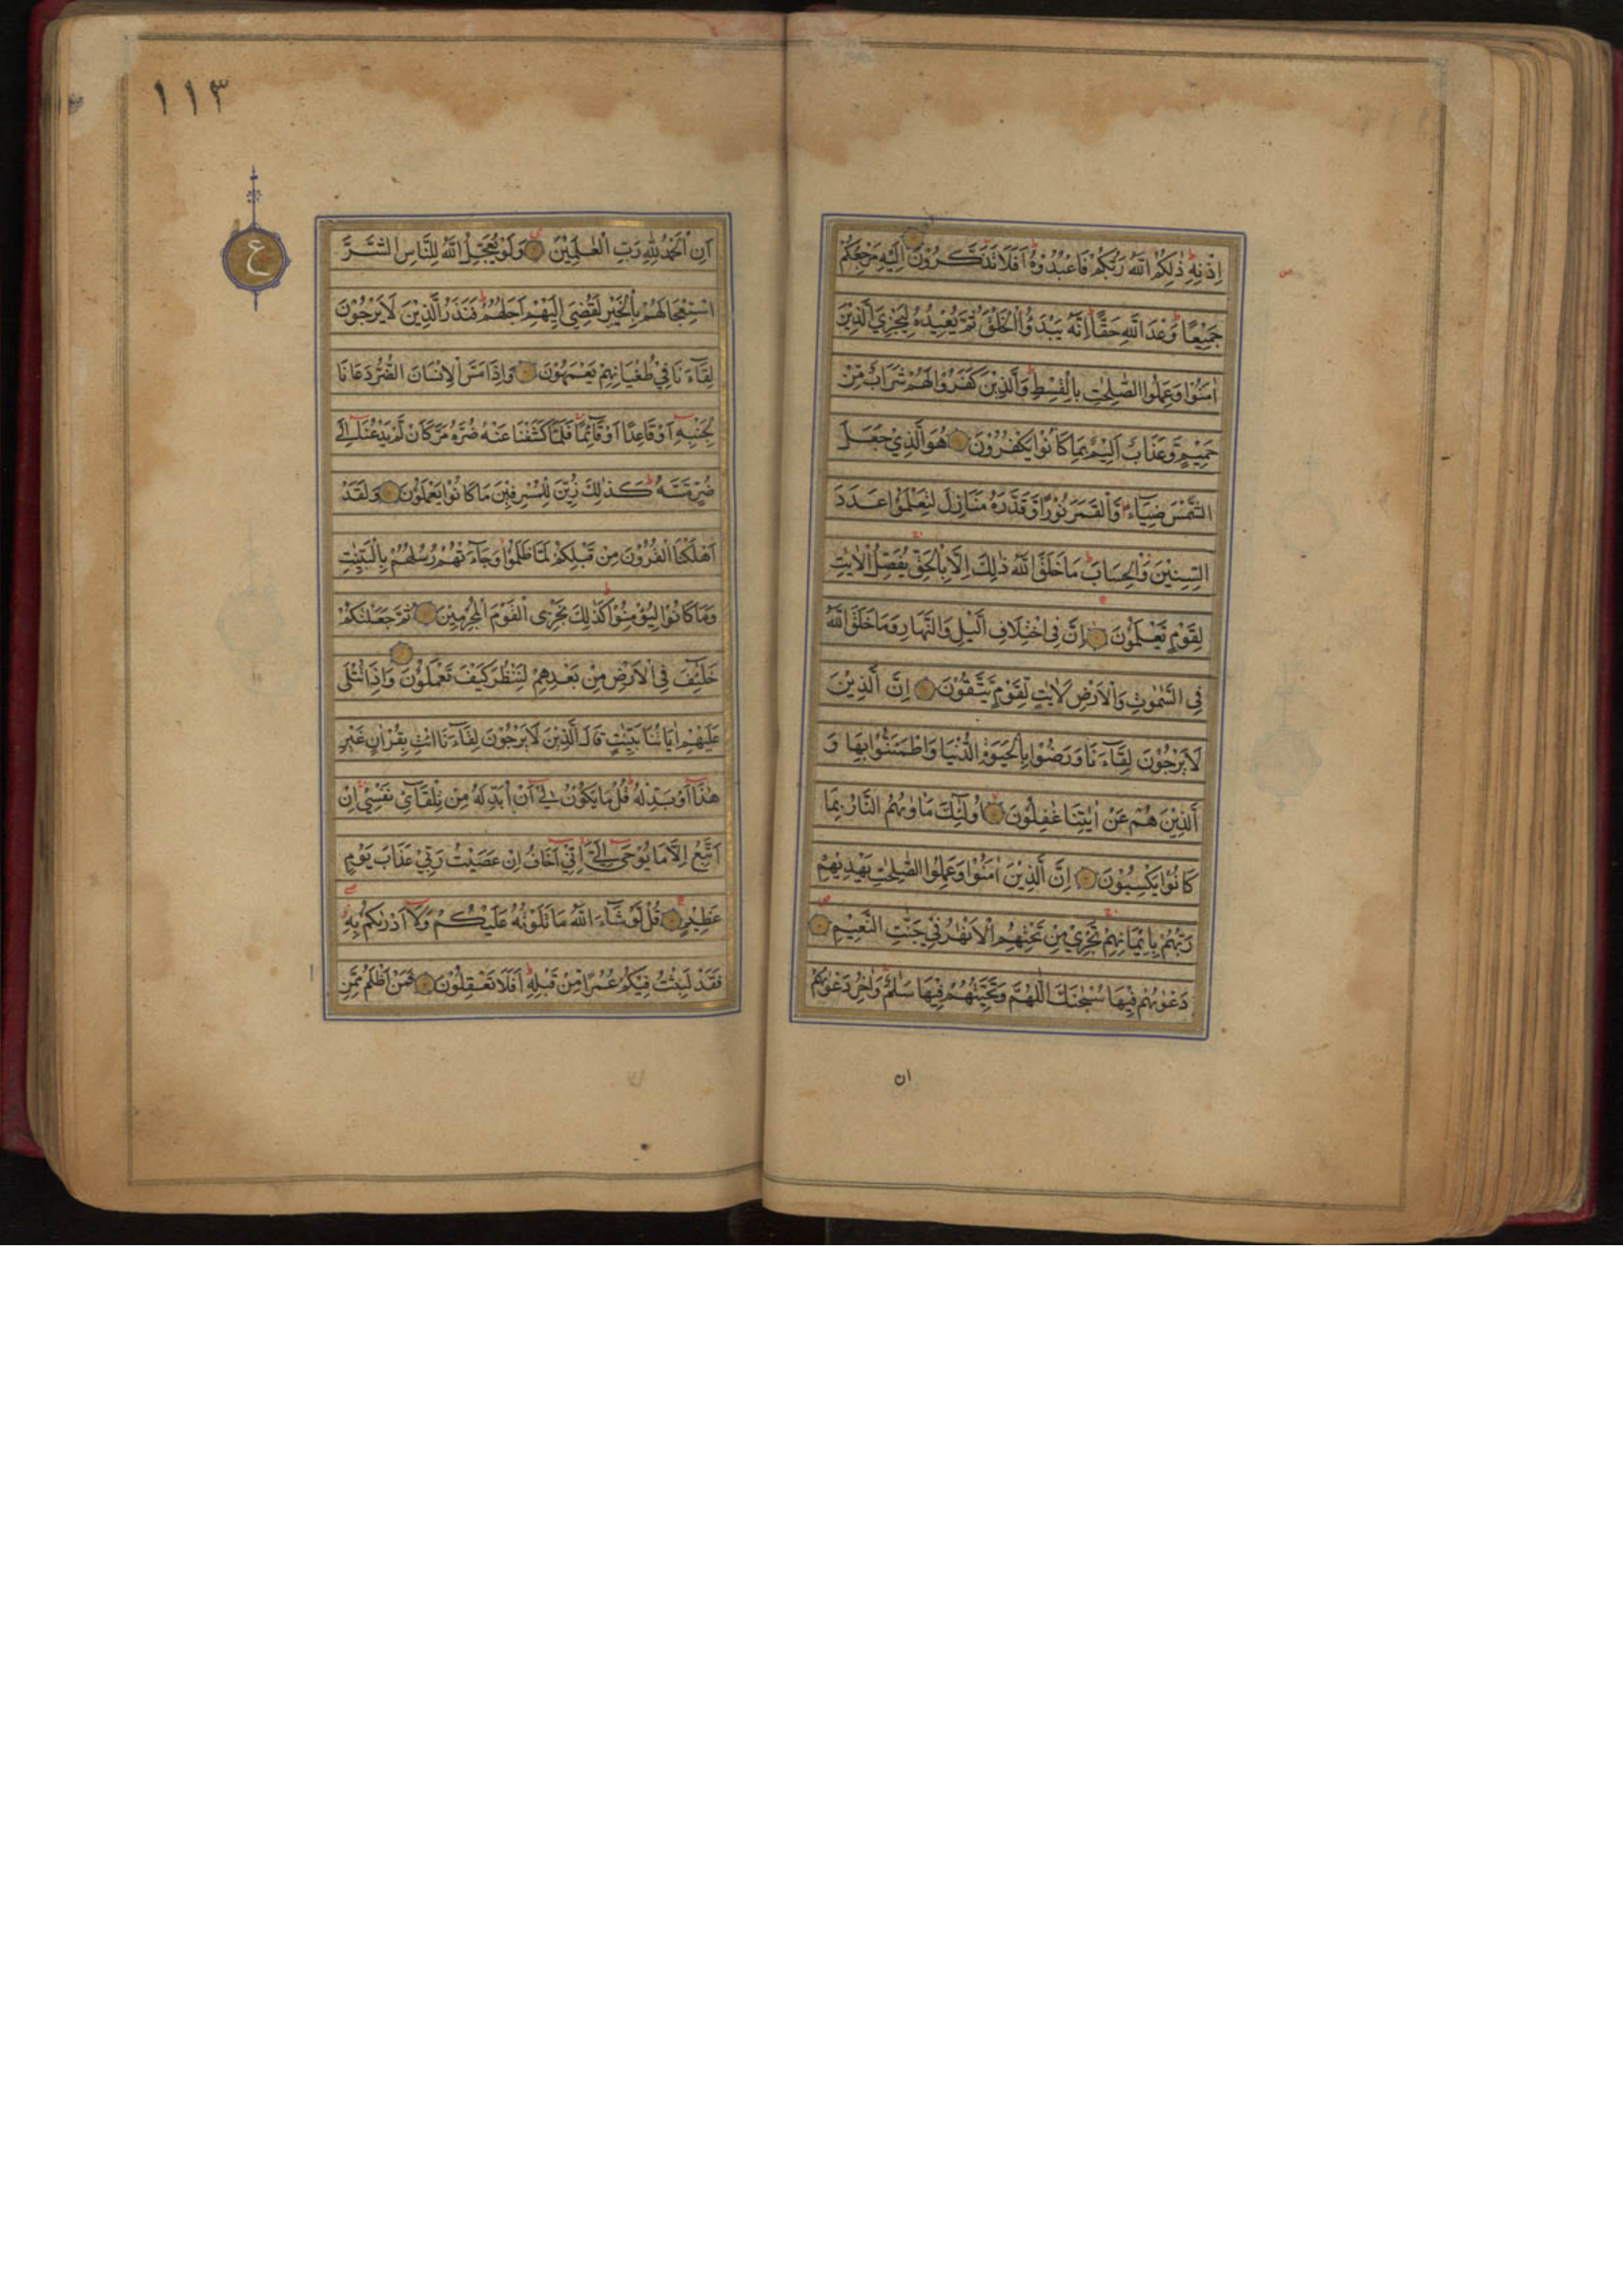 اِذْنِهٖ ذٰلِكُمُ اللّٰهُ رَبُّكُمْ فَاعْبُدُوْهُ اَفَلَا تَذَكَّرُوْنَ اِلَيْهِ مَرْجِعُكُمْ
جَمِيْعًا وَعْدَ اللّٰهِ حَقًّا اِنَّهٗ يَبْدَؤُا الْخَلْقَ ثُمَّ يُعِيْدُهٗ لِيَجْزِيَ الَّذِيْنَ
اٰمَنُوْا وَعَمِلُوا الصّٰلِحٰتِ بِالْقِسْطِ وَالَّذِيْنَ كَفَرُوْا لَهُمْ شَرَابٌ مِّنْ
حَمِيْمٍ وَّعَذَابٌ اَلِيْمٌ بِمَا كَانُوْا يَكْفُرُوْنَ هُوَ الَّذِيْ جَعَلَ
الشَّمْسَ ضِيَآءً وَّالْقَمَرَ نُوْرًا وَّقَدَّرَهٗ مَنَازِلَ لِتَعْلَمُوْا عَدَدَ
السِّنِيْنَ وَالْحِسَابَ مَا خَلَقَ اللّٰهُ ذٰلِكَ اِلَّا بِالْحَقِّ يُفَصِّلُ الْاٰيٰتِ
لِقَوْمٍ يَّعْلَمُوْنَ اِنَّ فِى اخْتِلَافِ الَّيْلِ وَالنَّهَارِ وَمَا خَلَقَ اللّٰهُ
فِى السَّمٰوٰتِ وَالْاَرْضِ لَاٰيٰتٍ لِّقَوْمٍ يَّتَّقُوْنَ اِنَّ الَّذِيْنَ
لَا يَرْجُوْنَ لِقَآءَنَا وَرَضُوْا بِالْحَيٰوةِ الدُّنْيَا وَاطْمَئَنُّوْا بِهَا وَ
الَّذِيْنَ هُمْ عَنْ اٰيٰتِنَا غٰفِلُوْنَ اُولٰٓئِكَ مَاْوٰىهُمُ النَّارُ بِمَا
كَانُوْا يَكْسِبُوْنَ اِنَّ الَّذِيْنَ اٰمَنُوْا وَعَمِلُوا الصّٰلِحٰتِ يَهْدِيْهِمْ
رَبُّهُمْ بِاِيْمَانِهِمْ تَجْرِيْ مِنْ تَحْتِهِمُ الْاَنْهٰرُ فِيْ جَنّٰتِ النَّعِيْمِ
دَعْوٰىهُمْ فِيْهَا سُبْحٰنَكَ اللّٰهُمَّ وَتَحِيَّتُهُمْ فِيْهَا سَلٰمٌ وَاٰخِرُ دَعْوٰىهُمْ
ان
١١٣
ع
اَنِ الْحَمْدُ لِلّٰهِ رَبِّ الْعٰلَمِيْنَ وَلَوْ يُعَجِّلُ اللّٰهُ لِلنَّاسِ الشَّرَّ
اسْتِعْجَالَهُمْ بِالْخَيْرِ لَقُضِيَ اِلَيْهِمْ اَجَلُهُمْ فَنَذَرُ الَّذِيْنَ لَا يَرْجُوْنَ
لِقَآءَنَا فِيْ طُغْيَانِهِمْ يَعْمَهُوْنَ وَاِذَا مَسَّ الْاِنْسَانَ الضُّرُّ دَعَانَا
لِجَنْبِهٖ اَوْ قَاعِدًا اَوْ قَآئِمًا فَلَمَّا كَشَفْنَا عَنْهُ ضُرَّهٗ مَرَّ كَاَنْ لَّمْ يَدْعُنَآ اِلٰى
ضُرٍّ مَّسَّهٗ كَذٰلِكَ زُيِّنَ لِلْمُسْرِفِيْنَ مَا كَانُوْا يَعْمَلُوْنَ وَلَقَدْ
اَهْلَكْنَا الْقُرُوْنَ مِنْ قَبْلِكُمْ لَمَّا ظَلَمُوْا وَجَآءَتْهُمْ رُسُلُهُمْ بِالْبَيِّنٰتِ
وَمَا كَانُوْا لِيُؤْمِنُوْا كَذٰلِكَ نَجْزِى الْقَوْمَ الْمُجْرِمِيْنَ ثُمَّ جَعَلْنٰكُمْ
خَلٰٓئِفَ فِى الْاَرْضِ مِنْ بَعْدِهِمْ لِنَنْظُرَ كَيْفَ تَعْمَلُوْنَ وَاِذَا تُتْلٰى
عَلَيْهِمْ اٰيَاتُنَا بَيِّنٰتٍ قَالَ الَّذِيْنَ لَا يَرْجُوْنَ لِقَآءَنَا ائْتِ بِقُرْاٰنٍ غَيْرِ
هٰذَآ اَوْ بَدِّلْهُ قُلْ مَا يَكُوْنُ لِيْ اَنْ اُبَدِّلَهٗ مِنْ تِلْقَآئِ نَفْسِيْ اِنْ
اَتَّبِعُ اِلَّا مَا يُوْحٰى اِلَيَّ اِنِّيْ اَخَافُ اِنْ عَصَيْتُ رَبِّيْ عَذَابَ يَوْمٍ
عَظِيْمٍ قُلْ لَوْ شَآءَ اللّٰهُ مَا تَلَوْتُهٗ عَلَيْكُمْ وَلَآ اَدْرٰىكُمْ بِهٖ
فَقَدْ لَبِثْتُ فِيْكُمْ عُمُرًا مِّنْ قَبْلِهٖ اَفَلَا تَعْقِلُوْنَ فَمَنْ اَظْلَمُ مِمَّنِ